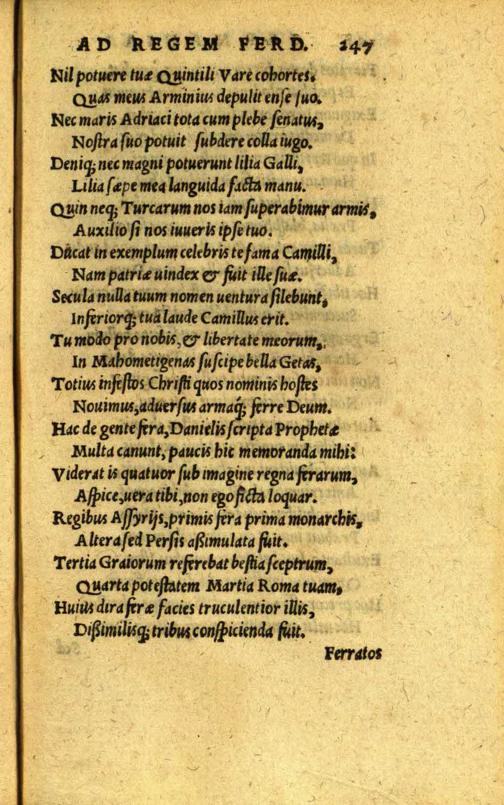 AD REGEM FERD. 247
Nil potuere tuæ Quintili Vare cohortes.
Quas meus Arminius depulit ense suo.
Nec maris Adriaci tota cum plebe senatus,
Nostra suo potuit subdere colla iugo.
Deniq; nec magni potuerunt lilia Galli,
Lilia sæpe mea languida facta manu.
Quin neq; Turcarum nos iam superabimur armis,
Auxilio si nos iuueris ipse tuo.
Ducat in exemplum celebris te fama Camilli,
Nam patriæ uindex & fuit ille suæ.
Secula nulla tuum nomen uentura silebunt,
Inferiorq; tua laude Camillus erit.
Tu modo pro nobis, & libertate meorum,
In Mahometigenas suscipe bella Getas,
Totius infestos Christi quos nominis hostes
Nouimus, aduersus armaq́; ferre Deum.
Hac de gente fera, Danielis scripta Prophetæ
Multa canunt, paucis hic memoranda mihi:
Viderat is quatuor sub imagine regna ferarum,
Aspice, uera tibi, non ego ficta loquar.
Regibus Assyrijs, primis fera prima monarchis,
Altera sed Persis aßimulata fuit.
Tertia Graiorum referebat bestia sceptrum,
Quarta potestatem Martia Roma tuam,
Huius dira feræ facies truculentior illis,
Dißimilisq; tribus conspicienda fuit.
Ferratos